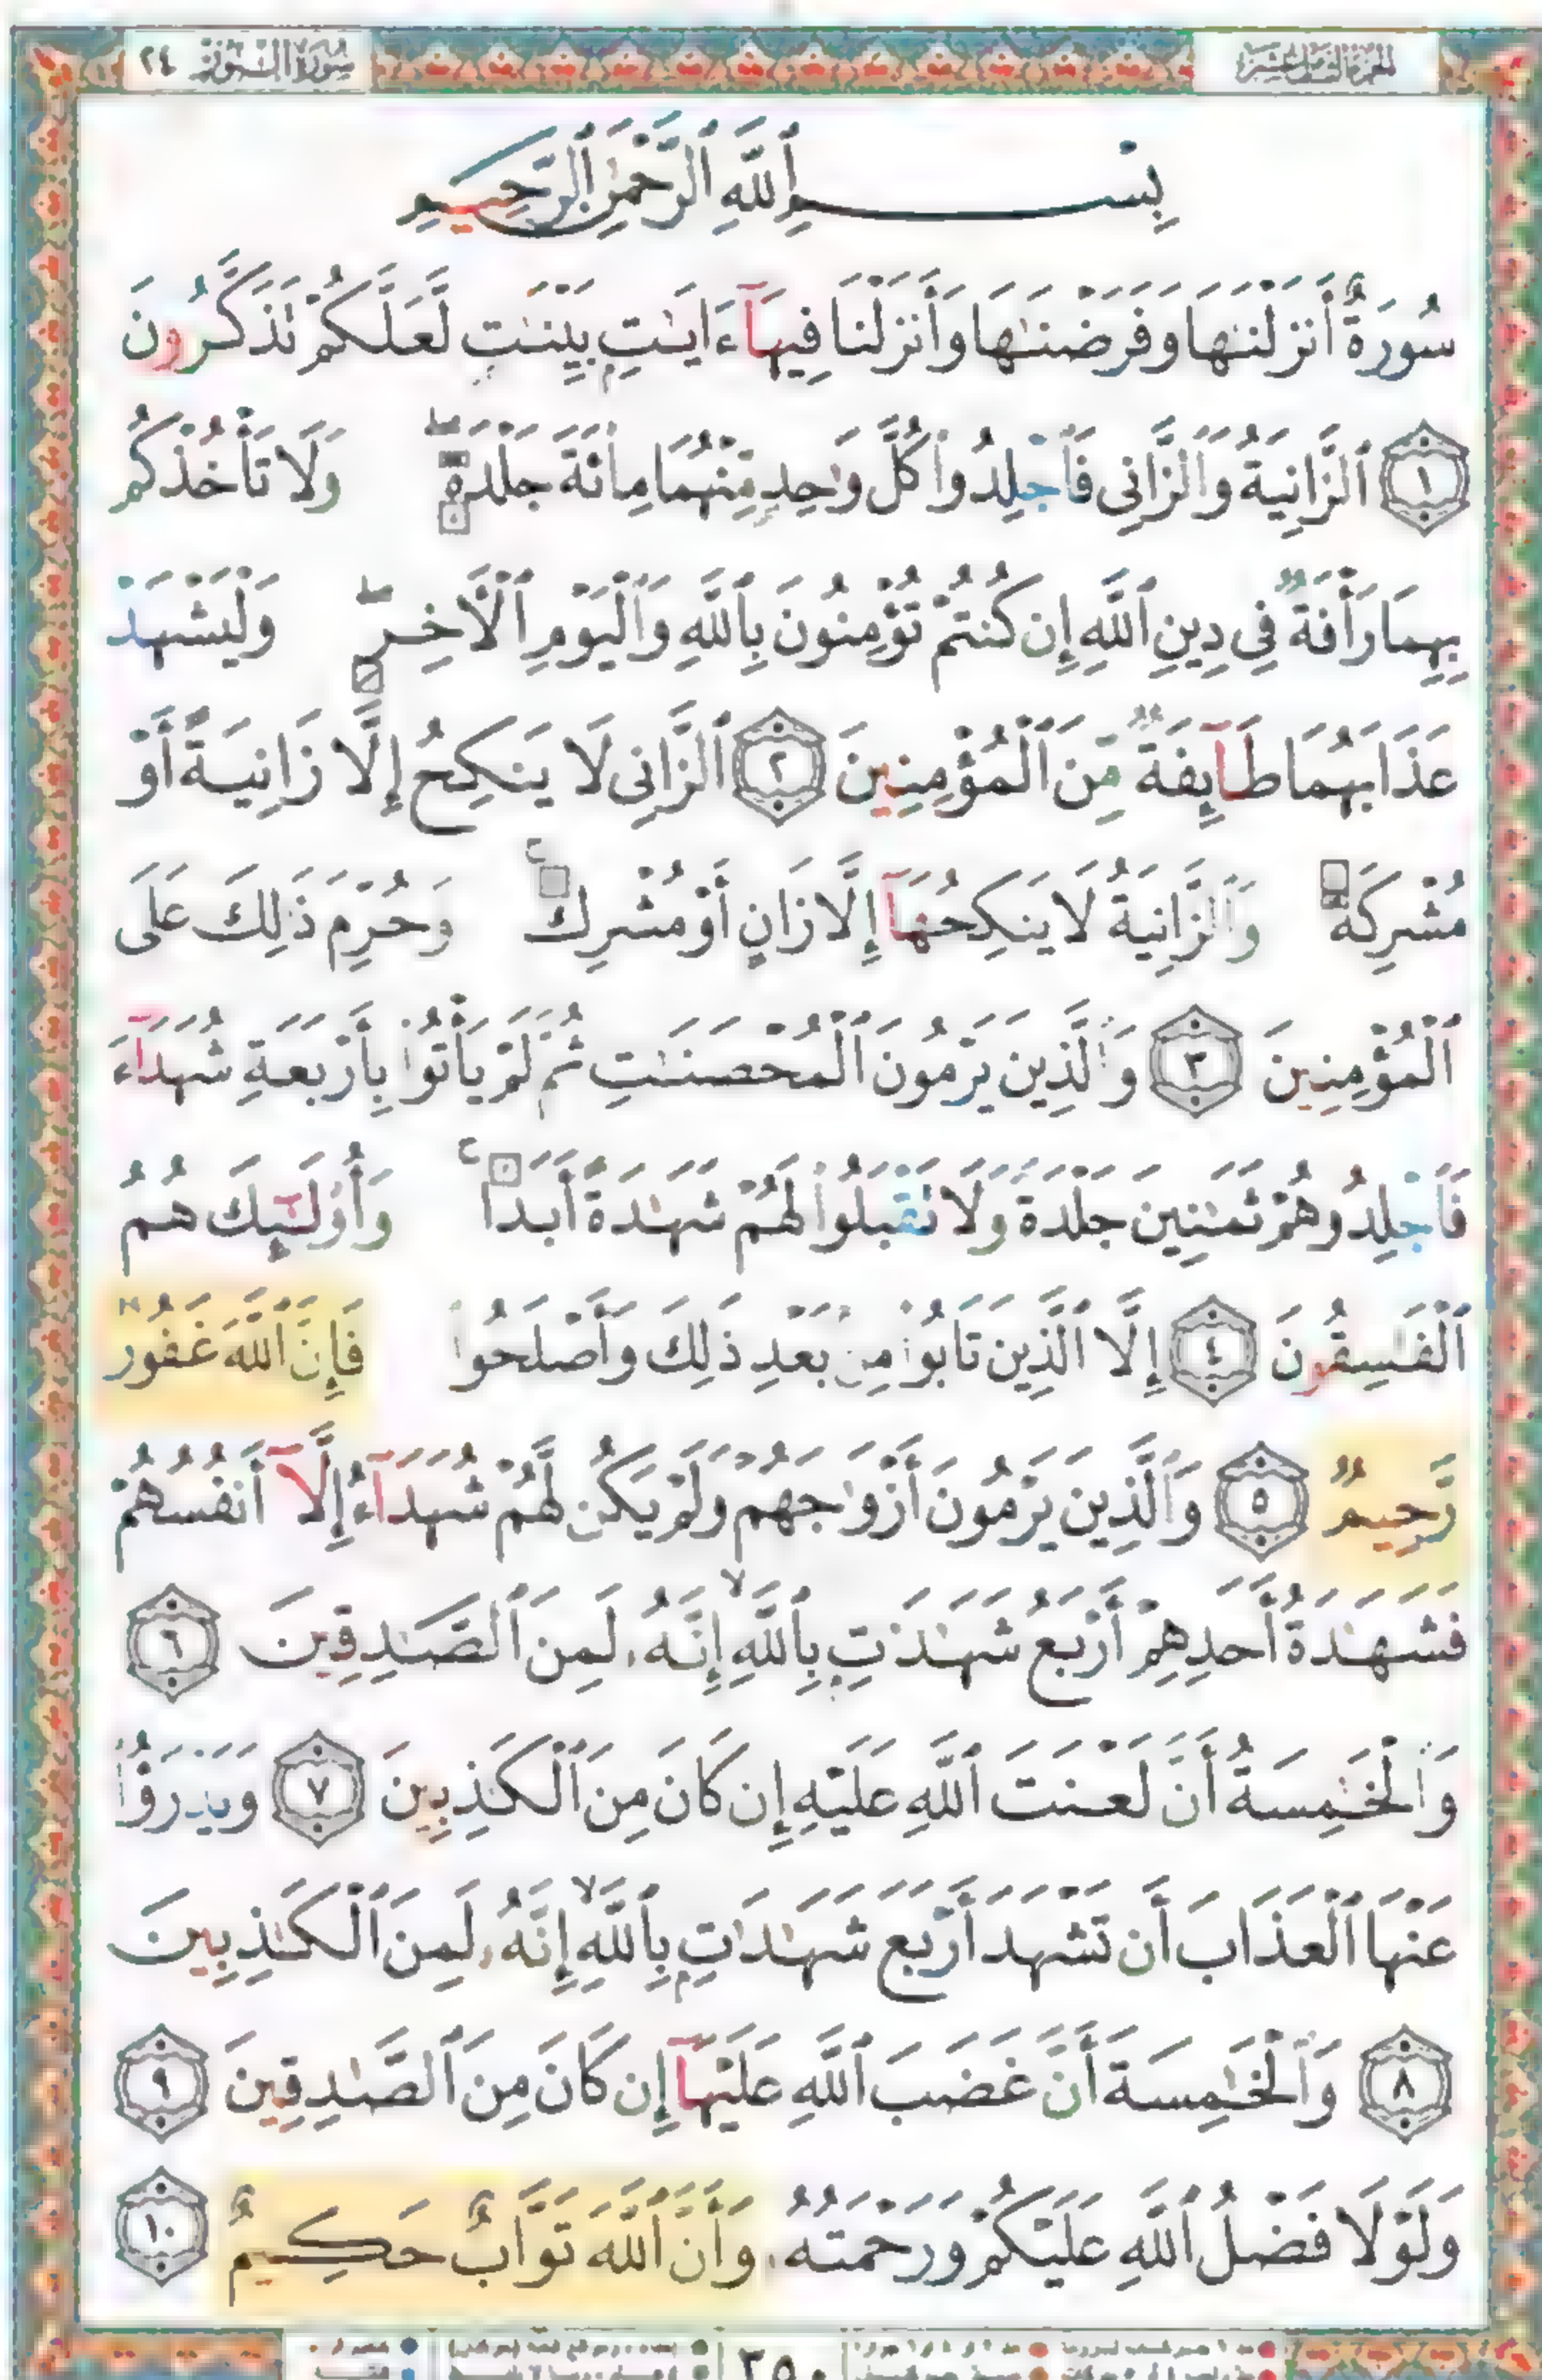 سُورَةُ النُّورِ ٢٤
بِسْمِ ٱللَّهِ ٱلرَّحْمَٰنِ ٱلرَّحِيمِ
سُورَةٌ أَنزَلْنَٰهَا وَفَرَضْنَٰهَا وَأَنزَلْنَا فِيهَآ ءَايَٰتٍۭ بَيِّنَٰتٍ لَّعَلَّكُمْ تَذَكَّرُونَ
١ ٱلزَّانِيَةُ وَٱلزَّانِى فَٱجْلِدُوا۟ كُلَّ وَٰحِدٍ مِّنْهُمَا مِا۟ئَةَ جَلْدَةٍۖ وَلَا تَأْخُذْكُم
بِهِمَا رَأْفَةٌ فِى دِينِ ٱللَّهِ إِن كُنتُمْ تُؤْمِنُونَ بِٱللَّهِ وَٱلْيَوْمِ ٱلْأَخِرِۖ وَلْيَشْهَدْ
عَذَابَهُمَا طَآئِفَةٌ مِّنَ ٱلْمُؤْمِنِينَ ٢ ٱلزَّانِى لَا يَنكِحُ إِلَّا زَانِيَةً أَوْ
مُشْرِكَةً وَٱلزَّانِيَةُ لَا يَنكِحُهَآ إِلَّا زَانٍ أَوْ مُشْرِكٌۚ وَحُرِّمَ ذَٰلِكَ عَلَى
ٱلْمُؤْمِنِينَ ٣ وَٱلَّذِينَ يَرْمُونَ ٱلْمُحْصَنَٰتِ ثُمَّ لَمْ يَأْتُوا۟ بِأَرْبَعَةِ شُهَدَآءَ
فَٱجْلِدُوهُمْ ثَمَٰنِينَ جَلْدَةً وَلَا تَقْبَلُوا۟ لَهُمْ شَهَٰدَةً أَبَدًاۚ وَأُو۟لَٰٓئِكَ هُمُ
ٱلْفَٰسِقُونَ ٤ إِلَّا ٱلَّذِينَ تَابُوا۟ مِنۢ بَعْدِ ذَٰلِكَ وَأَصْلَحُوا۟ فَإِنَّ ٱللَّهَ غَفُورٌ
رَّحِيمٌ ٥ وَٱلَّذِينَ يَرْمُونَ أَزْوَٰجَهُمْ وَلَمْ يَكُن لَّهُمْ شُهَدَآءُ إِلَّآ أَنفُسُهُمْ
فَشَهَٰدَةُ أَحَدِهِمْ أَرْبَعُ شَهَٰدَٰتٍۭ بِٱللَّهِۙ إِنَّهُۥ لَمِنَ ٱلصَّٰدِقِينَ ٦
وَٱلْخَٰمِسَةُ أَنَّ لَعْنَتَ ٱللَّهِ عَلَيْهِ إِن كَانَ مِنَ ٱلْكَٰذِبِينَ ٧ وَيَدْرَؤُا۟
عَنْهَا ٱلْعَذَابَ أَن تَشْهَدَ أَرْبَعَ شَهَٰدَٰتٍۭ بِٱللَّهِۙ إِنَّهُۥ لَمِنَ ٱلْكَٰذِبِينَ
٨ وَٱلْخَٰمِسَةَ أَنَّ غَضَبَ ٱللَّهِ عَلَيْهَآ إِن كَانَ مِنَ ٱلصَّٰدِقِينَ ٩
وَلَوْلَا فَضْلُ ٱللَّهِ عَلَيْكُمْ وَرَحْمَتُهُۥ وَأَنَّ ٱللَّهَ تَوَّابٌ حَكِيمٌ ١٠
٣٥٠